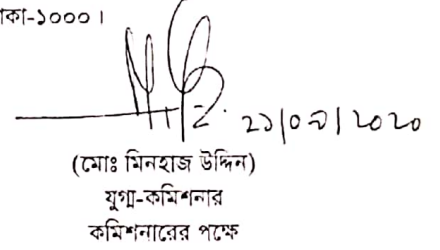 কা-১০০০।
২১/০৯/২০২০
(মোঃ মিনহাজ উদ্দিন)
যুগ্ম-কমিশনার
কমিশনারের পক্ষে